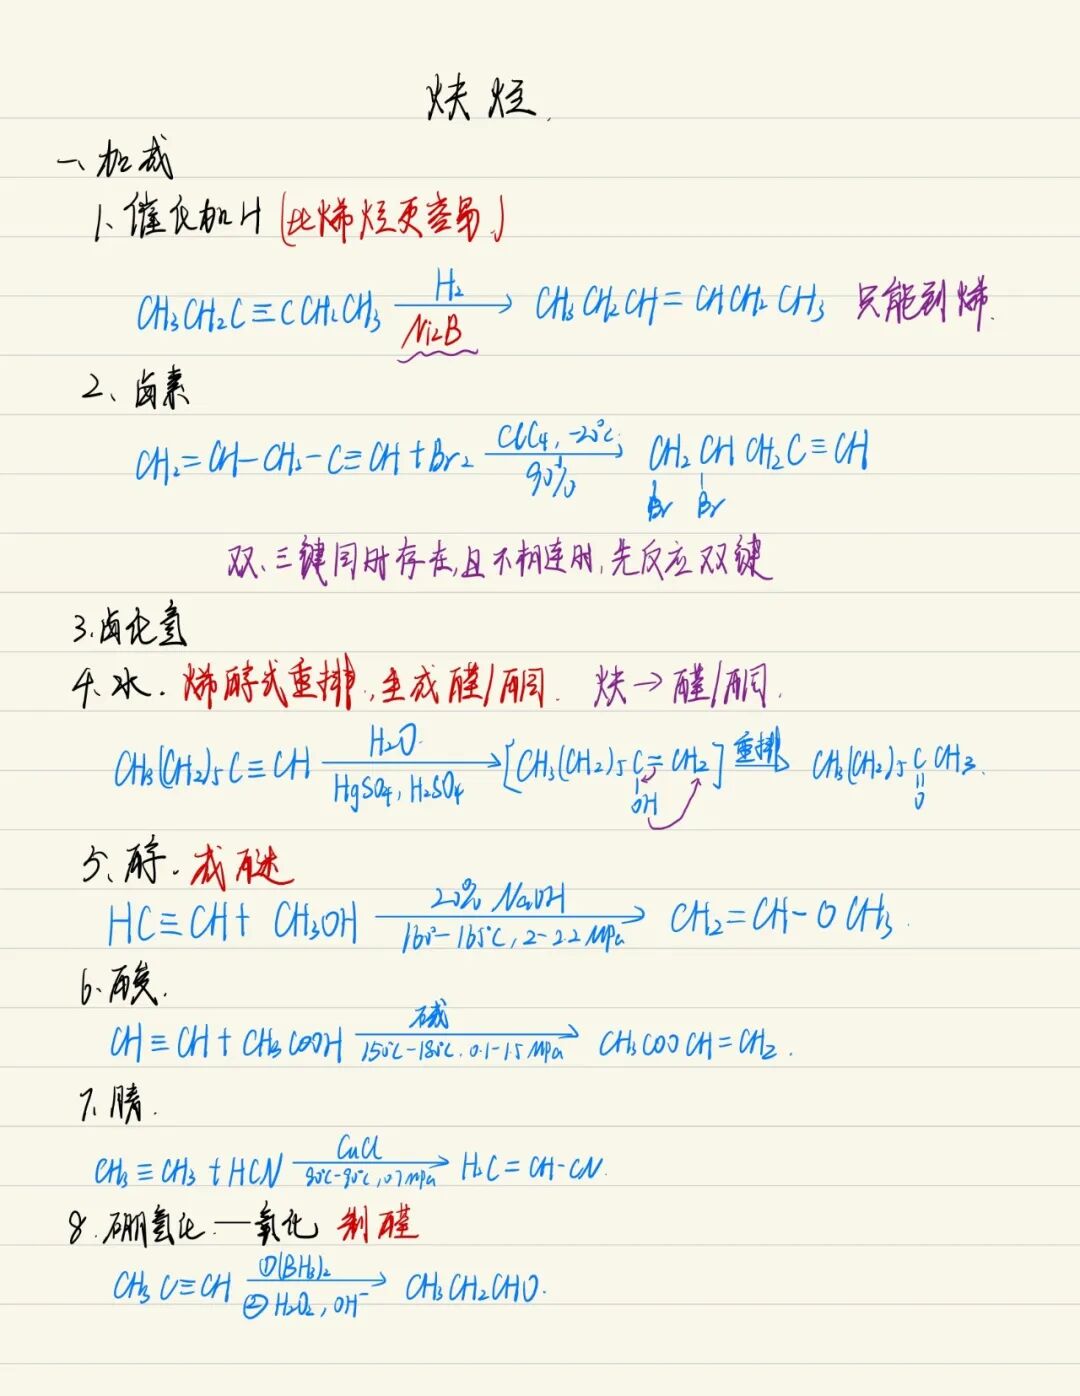 炔烃.
一、加成
1、催化加H (比烯烃更容易.)
CH3CH2C≡CCH2CH3 H2 Ni2B → CH3CH2CH=CHCH2CH3 只能到烯.
2、卤素
CH2=CH-CH2-C≡CH+Br2 CCl4, -20℃ 90% → CH2CHCH2C≡CH
Br Br
双、三键同时存在,且不相连时,先反应双键
3.卤化氢
4、水. 烯醇式重排,生成醛/酮. 炔→醛/酮.
CH3(CH2)5C≡CH H2O HgSO4, H2SO4 → [CH3(CH2)5C=CH2] 重排 → CH3(CH2)5CCH3.
OH O
5、醇. 成醚
HC≡CH+ CH3OH 20% NaOH 160°-165℃, 2-2.2MPa → CH2=CH-OCH3.
6、酸.
CH≡CH+CH3COOH 碱 150℃-180℃. 0.1-1.5MPa → CH3COOCH=CH2.
7、腈.
CH3≡CH3+HCN CuCl 80℃-90℃, 0.7MPa → H2C=CH-CN.
8.硼氢化.—氧化 制醛
CH3C≡CH ①(BH3)2 ②H2O2, OH⁻ → CH3CH2CHO.